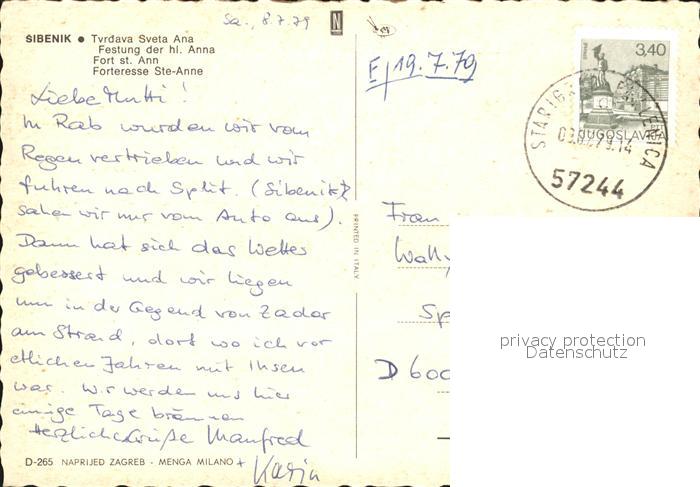 Sa., 8.7.79
ŠIBENIK ● Tvrđava Sveta Ana
Festung der hl. Anna
Fort st. Ann
Forteresse Ste-Anne
Liebe Mutti!
In Rab wurden wir vom
Regen vertrieben und wir
fuhren nach Split. (Sibenik
sahen wir nur vom Auto aus).
Dann hat sich das Wetter
gebessert und wir liegen
nun in der Gegend von Zadar
am Strand, dort wo ich vor
etlichen Jahren mit Ihsen
war. Wir werden uns hier
einige Tage bräunen
Herzliche Grüße Manfred
+ Karin
D-265 NAPRIJED ZAGREB - MENGA MILANO
N
PRINTED IN ITALY
E/19.7.79
3,40
JUGOSLAVIJA
STARIGRAD PAKLENICA
57244
Frau
Wally
Sp
D 600
privacy protection
Datenschutz